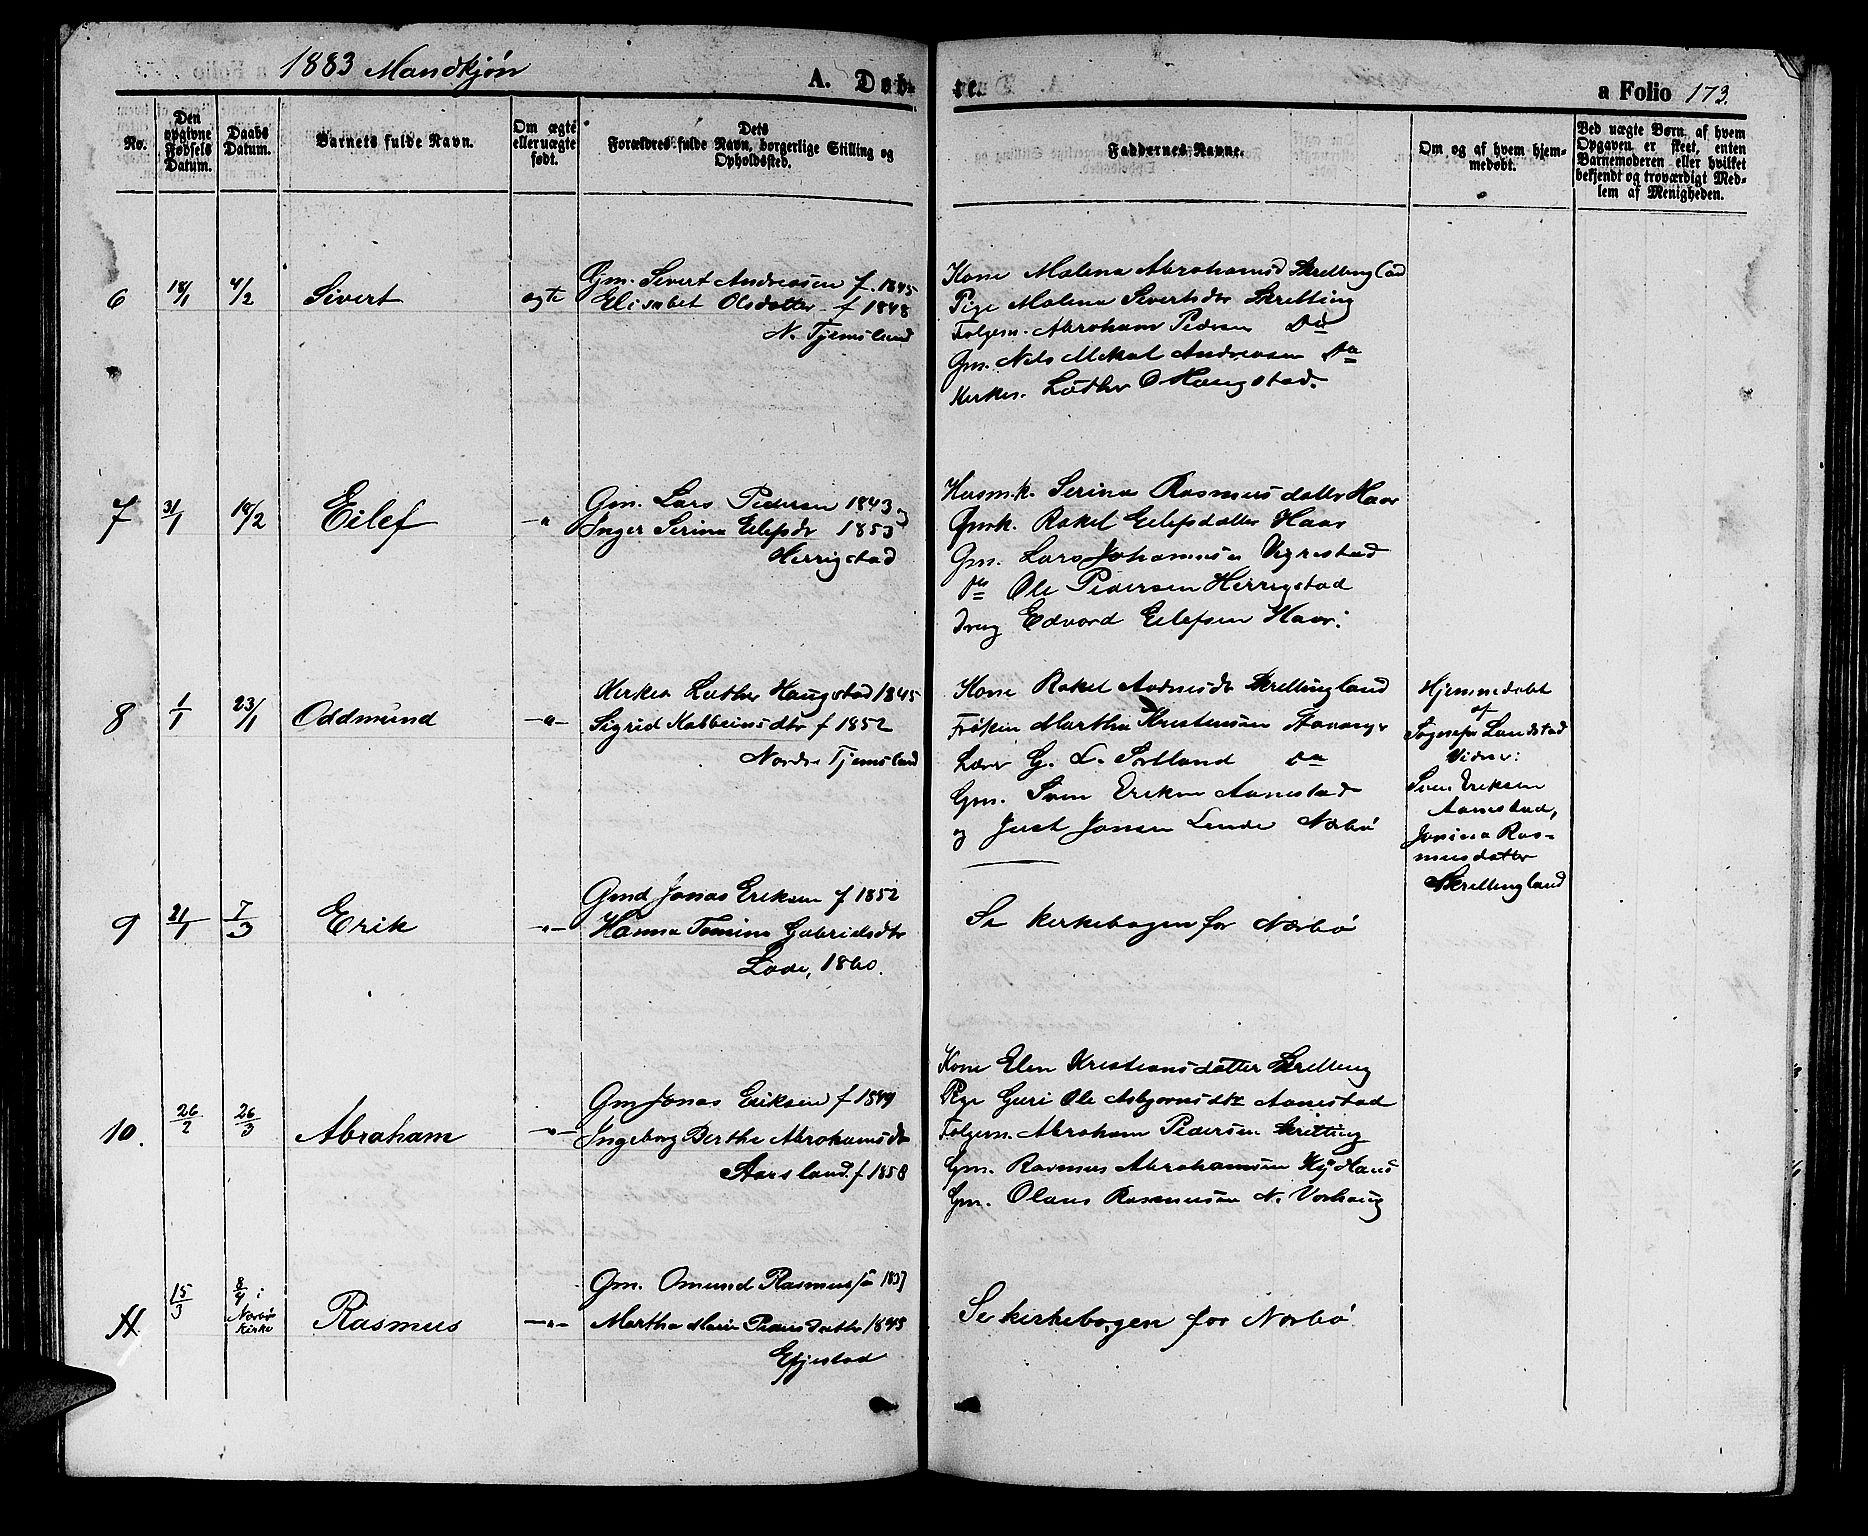 1883 Mandkjøn
A. Døb-
te.
a Folio 173.
No.
Den opgivne Fødsels Datum.
Daabs Datum.
Barnets fulde Navn.
Om ægte eller uægte født.
Dets Forældres fulde Navn, borgerlige Stilling og Opholdssted.
Faddernes Navne.
Om og af hvem hjem-
medøbt.
Ved uægte Børn, af hvem
Opgaven er skeet, enten
Barnemoderen eller hvilket
bekjendt og troværdigt Med-
lem af Menigheden.
6 18/1 4/2 Sivert ægte
Gm. Sivert Andreasen f. 1845
Elisabet Olsdatter f 1848
N. Tjemsland
Kone Malena Abrahamsd Skretting
Pige Malena Sivertsdtr Skretting
Følgem. Abraham Pedersen Do
Gm. Nils Mikal Andreasen Do
Kirkes. Luther O Haugstad.
7 31/1 18/2 Eilef —"
Gm. Lars Pedersen 1843 og
Inger Serine Eilefsdr 1853
Herrigstad
Husm.k. Serina Rasmusdatter Haar
Gmk. Rakel Eilefsdatter Haar
Gm. Lars Johannesen Vigrestad
Do Ole Pedersen Herrigstad
Dreng Edvard Eilefsen Haar.
8 1/1 23/1 Oddmund —"—
Kirkes Luther Haugstad 1845
Sigrid Kabbeinsdtr f 1852
Nordre Tjemsland
Kone Rakel Aadnesdr Skretting land
Frøken Martha Kristensen Stavanger
Lærer G. L. Sortland Do
Gm. Sven Eriksen Aanestad
og Just Jonsen Lende Nærbø
Hjemmedøbt
af
Sognepr Landstad
Vidner:
Sven Eriksen
Aanestad,
Jonina Ras-
musdatter
Skrettingland
9 21/1 7/3 Erik —"—
Gmd Jonas Eriksen f 1852
Hanna Tomine Gabrielsdtr
Lode, 1860.
Se kirkebogen for Nærbø
10. 26/2 26/3 Abraham —"—
Gm Jonas Eriksen f 1849
Ingeborg Berthe Abrahamsdr
Aarsland. f 1858
Kone Elen Kristiansdatter Skretting
Pige Guri Ole Asbjørnsdtr Aanestad
Følgem. Abraham Pedersen Skretting
Gm. Rasmus Abrahamsen
Gm. Olaus Rasmussen N. Varhaug
11. 15/3 8/4 i
Nærbø
kirke
Rasmus —"—
Gm. Omund Rasmussen 1837
Martha Marie Pedersdatter 1845
Efjestad
Se kirkebogen for Nærbø.